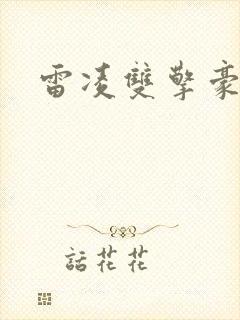 雷凌雙擎豪
話花花